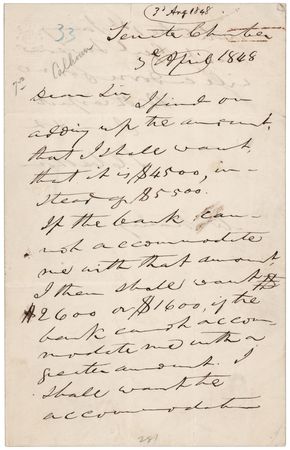 3d Aug 1848
33
Calhoun
Senate Chamber
3d April 1848
Dear Sir, I find on
adding up the amount,
that I shall want,
that it is $4500, in-
stead of $5500.
If the bank can-
not accommodate
me with that amount,
I then shall want
$2600 or $1600, if the
bank can not accom-
modate me with a
greater amount. I
shall want the
accommodation